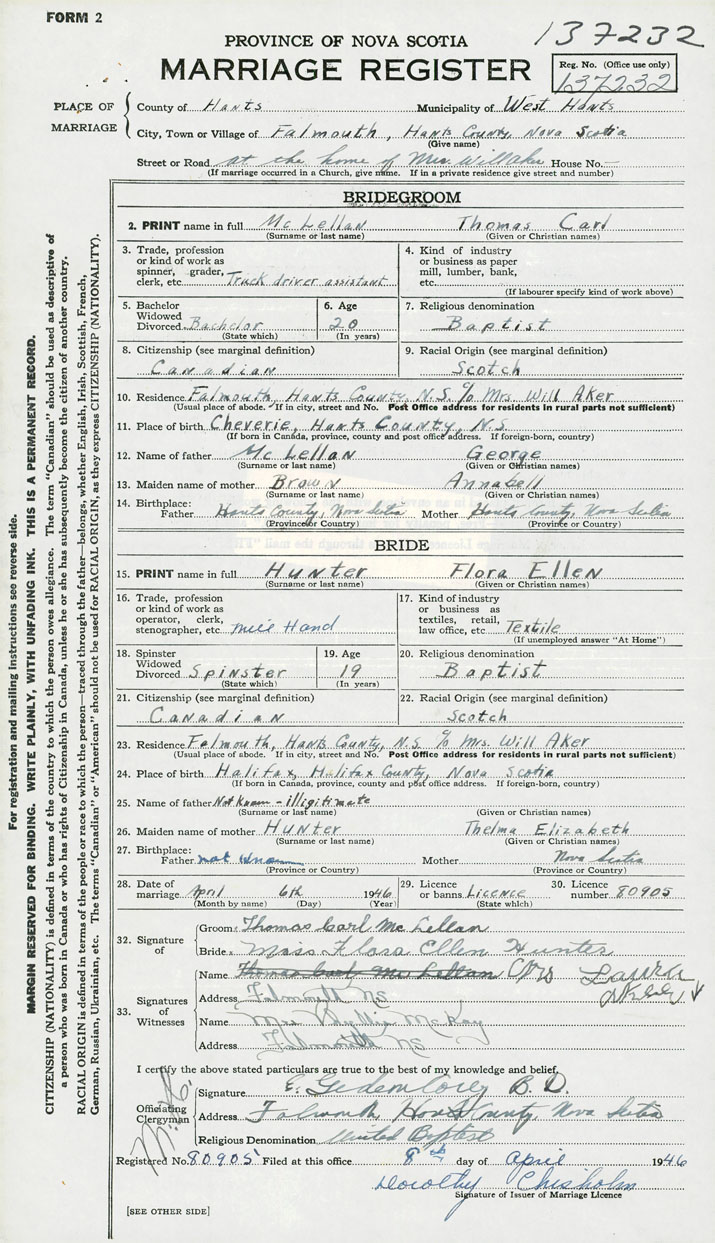 FORM 2
137232
PROVINCE OF NOVA SCOTIA
MARRIAGE REGISTER
Reg. No. (Office use only)
137232
PLACE OF MARRIAGE
County of Hants Municipality of West Hants
City, Town or Village of Falmouth, Hants County, Nova Scotia
(Give name)
Street or Road at the home of Mrs. Will Aker House No. —
(If marriage occurred in a Church, give name. If in a private residence give street and number)
BRIDEGROOM
2. PRINT name in full McLellan Thomas Carl
(Surname or last name) (Given or Christian names)
3. Trade, profession
or kind of work as
spinner, grader,
clerk, etc Truck driver assistant
4. Kind of industry
or business as paper
mill, lumber, bank,
etc.
(If labourer specify kind of work above)
5. Bachelor
Widowed
Divorced Bachelor
(State which)
6. Age
20
(In years)
7. Religious denomination
Baptist
8. Citizenship (see marginal definition)
Canadian
9. Racial Origin (see marginal definition)
Scotch
10. Residence Falmouth, Hants County, N.S. % Mrs Will Aker
(Usual place of abode. If in city, street and No. Post Office address for residents in rural parts not sufficient)
11. Place of birth Cheverie, Hants County, N.S.
(If born in Canada, province, county and post office address. If foreign-born, country)
12. Name of father McLellan George
(Surname or last name) (Given or Christian names)
13. Maiden name of mother Brown Annabell
(Surname or last name) (Given or Christian names)
14. Birthplace:
Father Hants County, Nova Scotia Mother Hants County, Nova Scotia
(Province or Country) (Province or Country)
BRIDE
15. PRINT name in full Hunter Flora Ellen
(Surname or last name) (Given or Christian names)
16. Trade, profession
or kind of work as
operator, clerk,
stenographer, etc Mill Hand
17. Kind of industry
or business as
textiles, retail,
law office, etc. Textile
(If unemployed answer "At Home")
18. Spinster
Widowed
Divorced Spinster
(State which)
19. Age
19
(In years)
20. Religious denomination
Baptist
21. Citizenship (see marginal definition)
Canadian
22. Racial Origin (see marginal definition)
Scotch
23. Residence Falmouth, Hants County, N.S. % Mrs. Will Aker
(Usual place of abode. If in city, street and No. Post Office address for residents in rural parts not sufficient)
24. Place of birth Halifax, Halifax County, Nova Scotia
(If born in Canada, province, county and post office address. If foreign-born, country)
25. Name of father Not Known - illigitimate
(Surname or last name) (Given or Christian names)
26. Maiden name of mother Hunter Thelma Elizabeth
(Surname or last name) (Given or Christian names)
27. Birthplace:
Father not known Mother Nova Scotia
(Province or Country) (Province or Country)
28. Date of
marriage April 6th 1946
(Month by name) (Day) (Year)
29. Licence
or banns Licence
(State which)
30. Licence
number 80905
32. Signature of
Groom: Thomas Carl McLellan
Bride: Miss Flora Ellen Hunter
33. Signatures of Witnesses
Name Thomas Carl McLellan Mrs Laura
Address Falmouth NS
Name Mrs Phyllis McKay
Address Falmouth NS
I certify the above stated particulars are true to the best of my knowledge and belief.
Officiating Clergyman
Signature E. Gideon Corey B.D.
Address Falmouth Hants County, Nova Scotia
Religious Denomination United Baptist
Registered No. 80905 Filed at this office 8th day of April 1946
Dorothy Chisholm
Signature of Issuer of Marriage Licence
[SEE OTHER SIDE]
For registration and mailing instructions see reverse side.
MARGIN RESERVED FOR BINDING. WRITE PLAINLY, WITH UNFADING INK. THIS IS A PERMANENT RECORD.
CITIZENSHIP (NATIONALITY) is defined in terms of the country to which the person owes allegiance. The term "Canadian" should be used as descriptive of
a person who was born in Canada or who has rights of Citizenship in Canada, unless he or she has subsequently become the citizen of another country.
RACIAL ORIGIN is defined in terms of the people or race to which the person—traced through the father—belongs, whether English, Irish, Scottish, French,
German, Russian, Ukrainian, etc. The terms "Canadian" or "American" should not be used for RACIAL ORIGIN, as they express CITIZENSHIP (NATIONALITY).